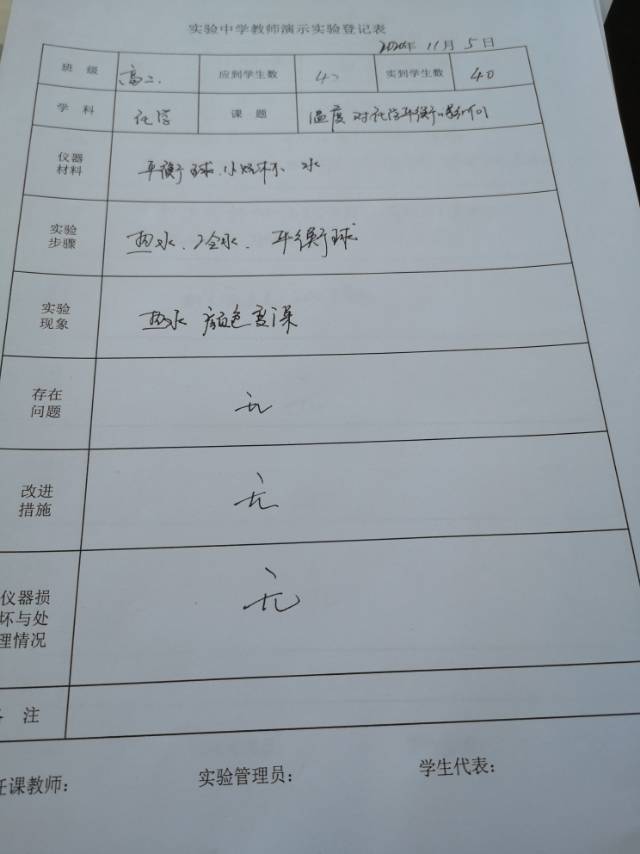 实验中学教师演示实验登记表
2020年 11月 5日
班 级 高二. 应到学生数 40 实到学生数 40
学 科 化学 课 题 温度对化学平衡的影响
仪器材料 平衡球.小烧杯 水
实验步骤 热水.冷水. 平衡球
实验现象 热水 颜色变深
存在问题 无
改进措施 无
仪器损坏与处理情况 无
备 注
任课教师: 实验管理员: 学生代表: